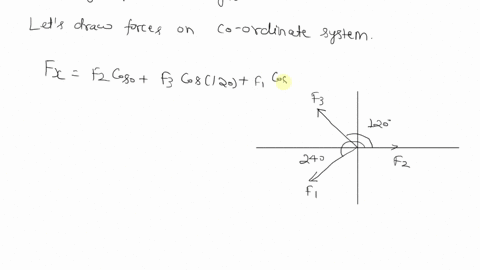 Let's draw forces on co-ordinate system.
Fx = F2 Cos0 + F3 Cos(120) + F1 Cos
F3
120°
240
F2
F1